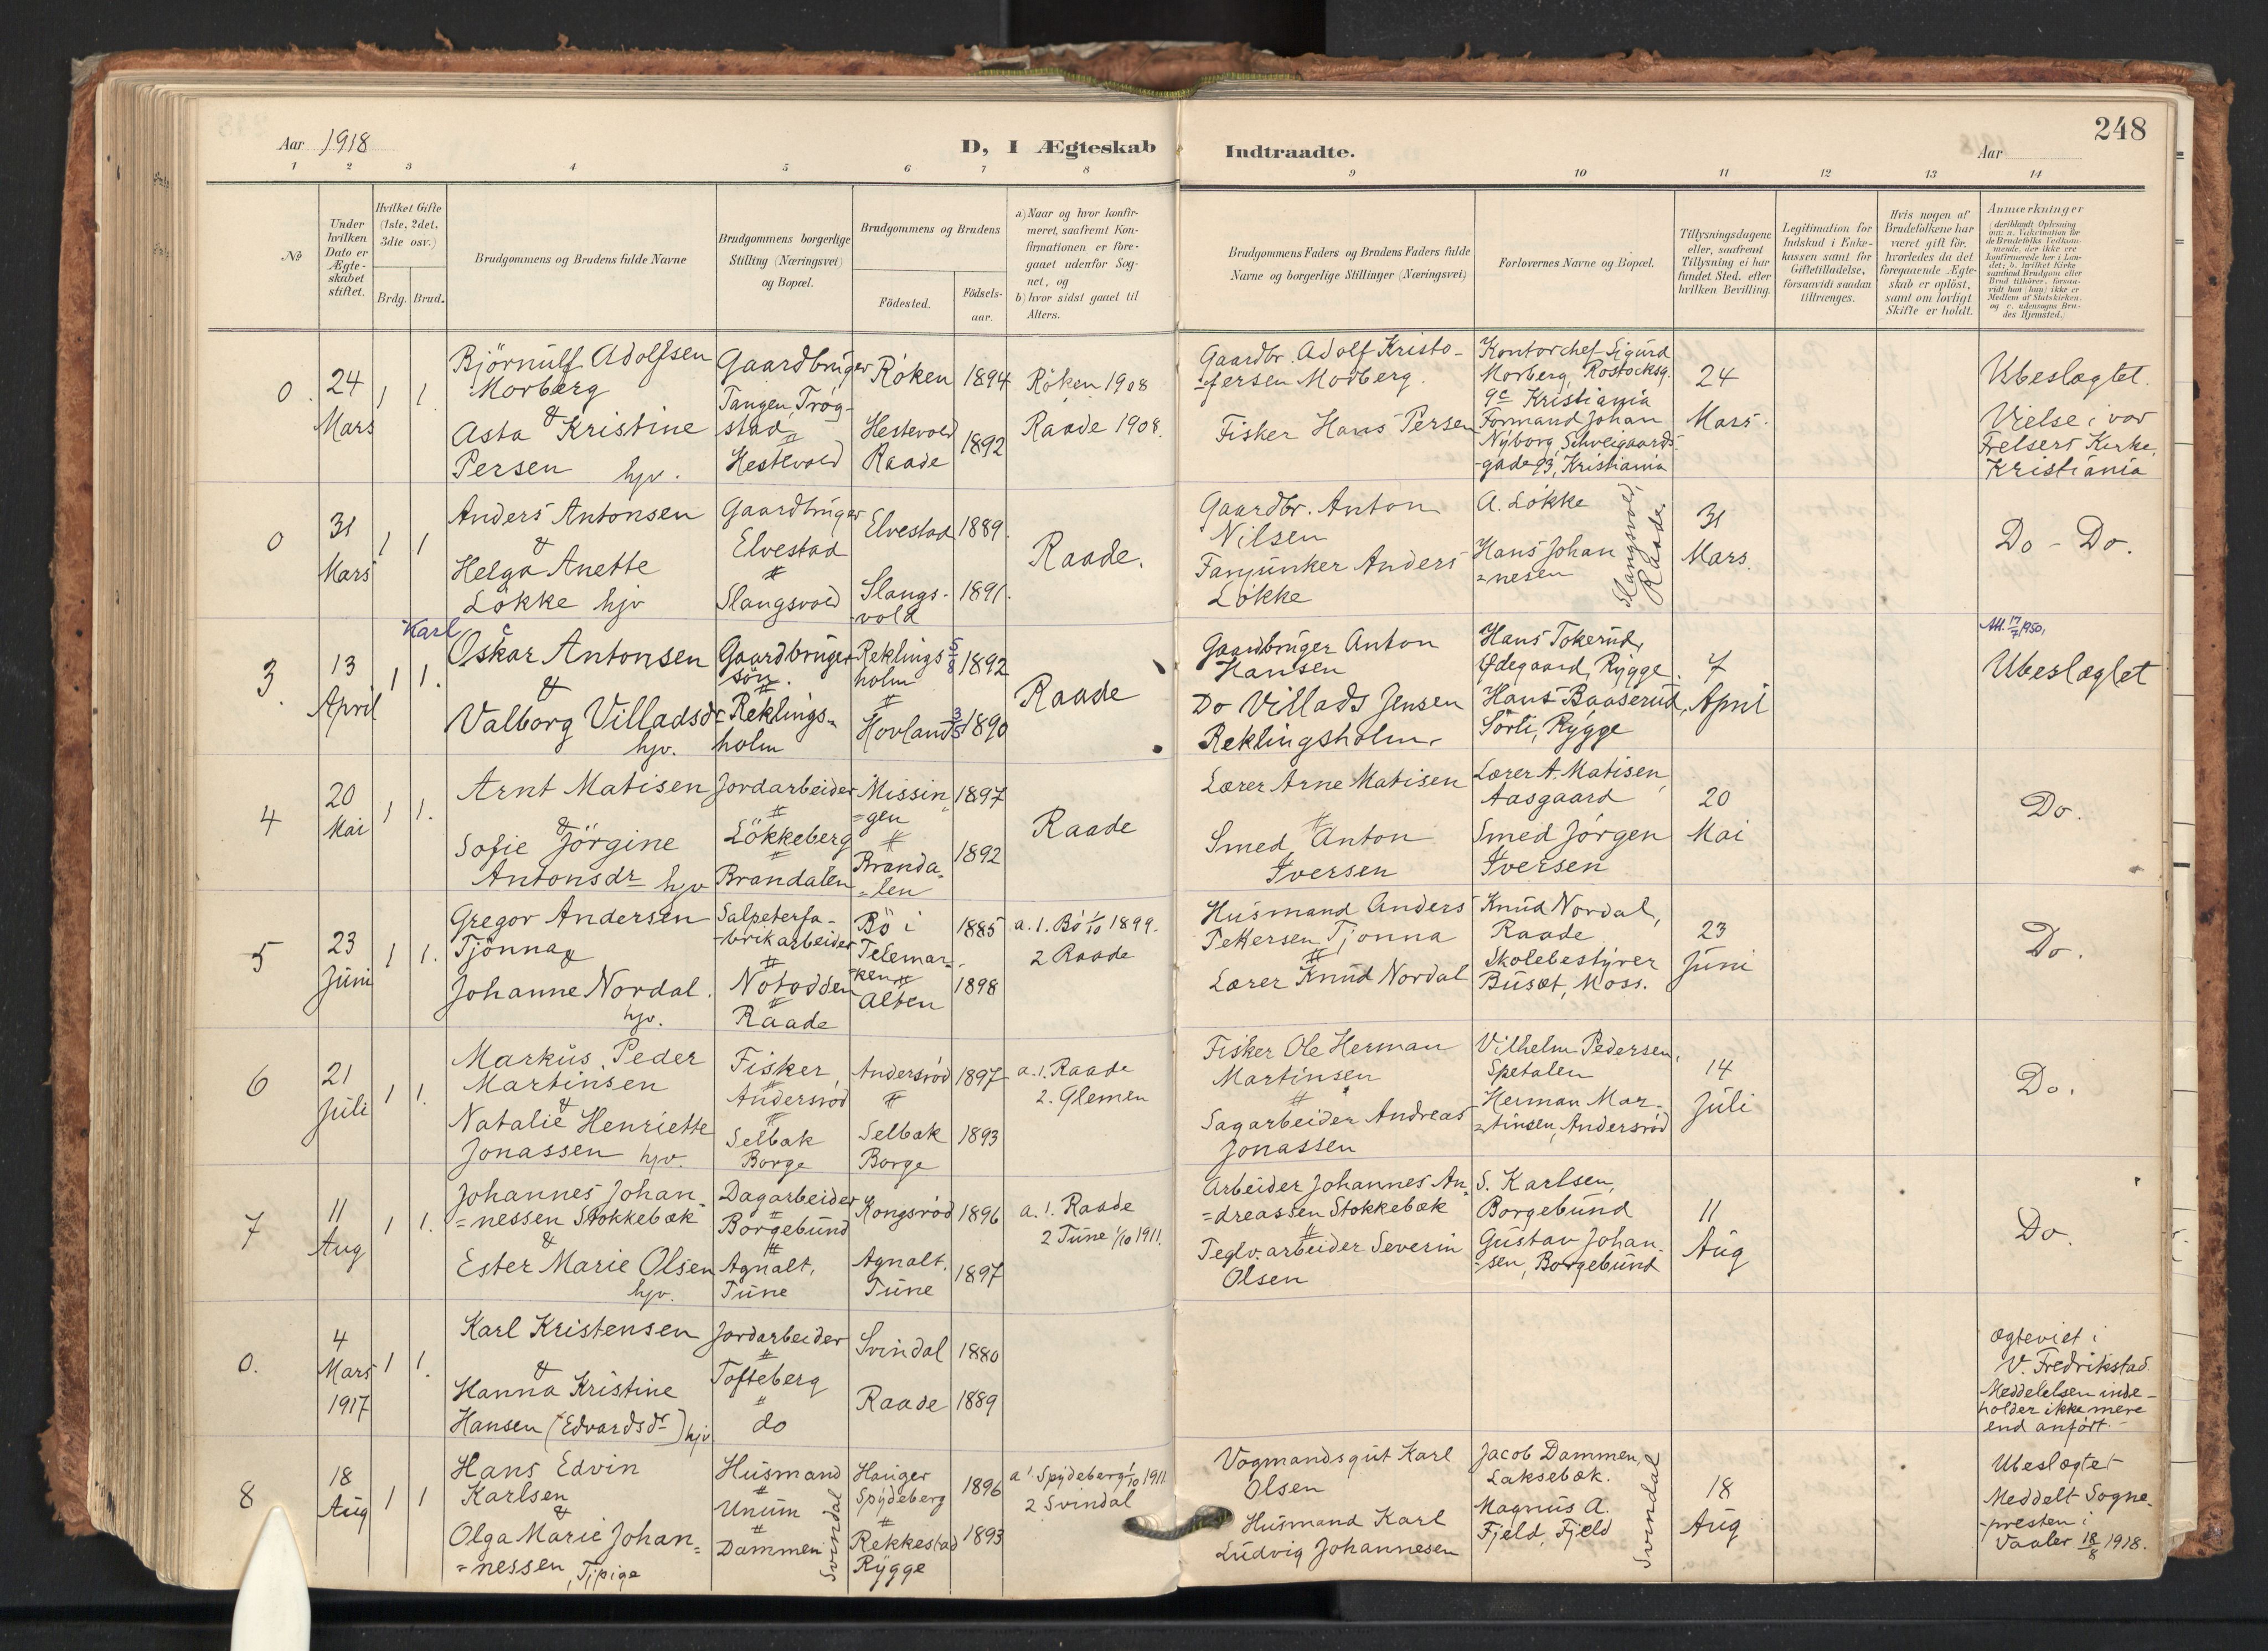 248
Aar 1918
D, I Ægteskab Indtraadte.
Aar
1 2 3 4 5 6 7 8 9 10 11 12 13 14
No
Under hvilken Dato er Ægteskabet stiftet.
Hvilket Gifte (1ste, 2det, 3die osv.)
Brdg. Brud.
Brudgommens og Brudens fulde Navne
Brudgommens borgerlige Stilling (Næringsvei) og Bopæl.
Brudgommens og Brudens
Födested.
Födselsaar.
a) Naar og hvor konfirmeret, saafremt Konfirmationen er foregaaet udenfor Sognet, og
b) hvor sidst gaaet til Alters.
Brudgommens Faders og Brudens Faders fulde Navne og borgerlige Stillinger (Næringsvei)
Forlovernes Navne og Bopæl.
Tillysningsdagene eller, saafremt Tillysning ei har fundet Sted, efter hvilken Bevilling.
Legitimation for Indskud i Enkekassen samt for Giftetilladelse, forsaavidt saadan tiltrænges.
Hvis nogen af Brudefolkene har været gift för, hvorledes da det foregaaende Ægteskab er oplöst, samt om lovligt Skifte er holdt.
Anmærkninger
(deriblandt Oplysning om: a. Vakcination for de Brudefolks Vedkommende, der ikke ere konfirmerede her i Landet; b. hvilket Kirkesamfund Brudgom eller Brud tilhörer, forsaavidt han (hun) ikke er Medlem af Statskirken, og c. udensogns Brudes Hjemsted.)
0.
24
Mars
1 1.
Björnulf Adolfsen
Morberg
&
Asta Kristine
Persen hjv.
Gaardbruger
Tangen, Trög-
stad
"
Hestevold
Röken
Hestevold
Raade
1894
1892
Röken 1908
Raade 1908.
Gaardbr. Adolf Kristo-
-fersen Modberg.
Fisker Hans Persen
Kontorchef Sigurd
Morberg, Rostocksg.
9c Kristiania
Formand Johan
Nyborg, Schveigaards-
-gade 93, Kristiania
24
Mars.
Ubeslægtet.
Vielse i vor
Frelsers Kirke,
Kristiania
0
31
Mars
1 1
Anders Antonsen
&
Helga Anette
Lökke hjv
Gaardbruger
Elvestad
"
Slangsvold
Elvestad
Slangs-
vold
1889.
1891.
Raade.
Gaardbr. Anton
Nilsen
Fanjunker Anders
Lökke
A. Lökke
Hans Johan
=nesen
Slangsvold,
Raade.
31
Mars.
Do - Do.
3.
13
April
1 1.
Karl
Oskar Antonsen
&
Valborg Villadsdr
hjv.
Gaardbruger
sön.
"
Reklings-
holm
Reklings
holm
"
Hovland
5/8 1892
3/5 1890
Raade
Gaardbruger Anton
Hansen
Do Villads Jensen
Reklingsholm.
Hans Tokerud,
Ødegaard, Rygge.
Hans Baaserud,
Sörli, Rygge
7
April
Att. 17/7 1950.
Ubeslægtet
4
20
Mai
1 1.
Arnt Matisen
&
Sofie Jörgine
Antonsdr hjv
Jordarbeider
"
Lökkeberg
"
Brandalen
Missin
=gen
"
Branda-
=len
1897
1892
Raade
Lærer Arne Matisen
"
Smed Anton
Iversen
Lærer A. Matisen,
Aasgaard
Smed Jörgen
Iversen
20
Mai
Do.
5
23
Juni
1 1.
Gregor Andersen
Tjönna &
Johanne Nordal.
hjv.
Salpeterfa-
-brikarbeider
"
Notodden
"
Raade
Bö i
Telemar-
ken "
Alten
1885
1898
a. 1. Bö 1/10 1899.
2 Raade
Husmand Anders
Pettersen Tjonna
"
Lærer Knud Nordal
Knud Nordal,
Raade
Skolebestyrer
Busæt, Moss.
23
Juni
Do.
6
21
Juli
1 1.
Markus Peder
Martinsen
&
Natalie Henriette
Jonassen hjv.
Fisker
"
Andersröd
"
Selbak
Borge
Andersröd
"
Selbak
Borge
1897
1893
a. 1. Raade
2. Glemen
Fisker Ole Herman
Martinsen
"
Sagarbeider Andreas
Jonassen
Vilhelm Pedersen,
Spetalen
Herman Mar-
=tinsen, Andersröd
14
Juli
Do.
7
11
Aug
1 1.
Johannes Johan-
=nessen Stokkebæk
&
Ester Marie Olsen
hjv.
Dagarbeider
"
Borgebund
"
Agnalt,
Tune
Kongsröd
Agnalt.
Tune
1896
1897
a. 1. Raade
2 Tune 1/10 1911.
Arbeider Johannes An-
=dreassen Stokkebæk
"
Teglv.arbeider Severin
Olsen
S. Karlsen,
Borgebund
Gustav Johan-
sen, Borgebund
11
Aug
Do.
0.
4
Mars
1917
1 1.
Karl Kristensen
&
Hanna Kristine
Hansen (Edvardsdr) hjv
Jordarbeider
"
Tofteberg
"
do
Svindal
Raade
1880
1889
Ægteviet i
V. Fredrikstad
Meddelelsen inde-
holder ikke mere
end anfört.
8
18
Aug
1 1
Hans Edvin
Karlsen
&
Olga Marie Johan-
=nessen, Tjpige
Husmand
"
Unum
"
Dammen
Svindal
Hauger
Spydeberg
"
Rekkestad
Rygge
1896
1893
a 1. Spydeberg 1/10 1911
2 Svindal
Vogmandsgut Karl
Olsen
Husmand Karl
Ludvig Johannesen
Jacob Dammen,
Laksebæk.
Magnus A.
Fjeld, Fjeld
Svindal
18
Aug
Ubeslægtet
Meddelt Sogne-
-presten i
Vaaler 18/8 1918.